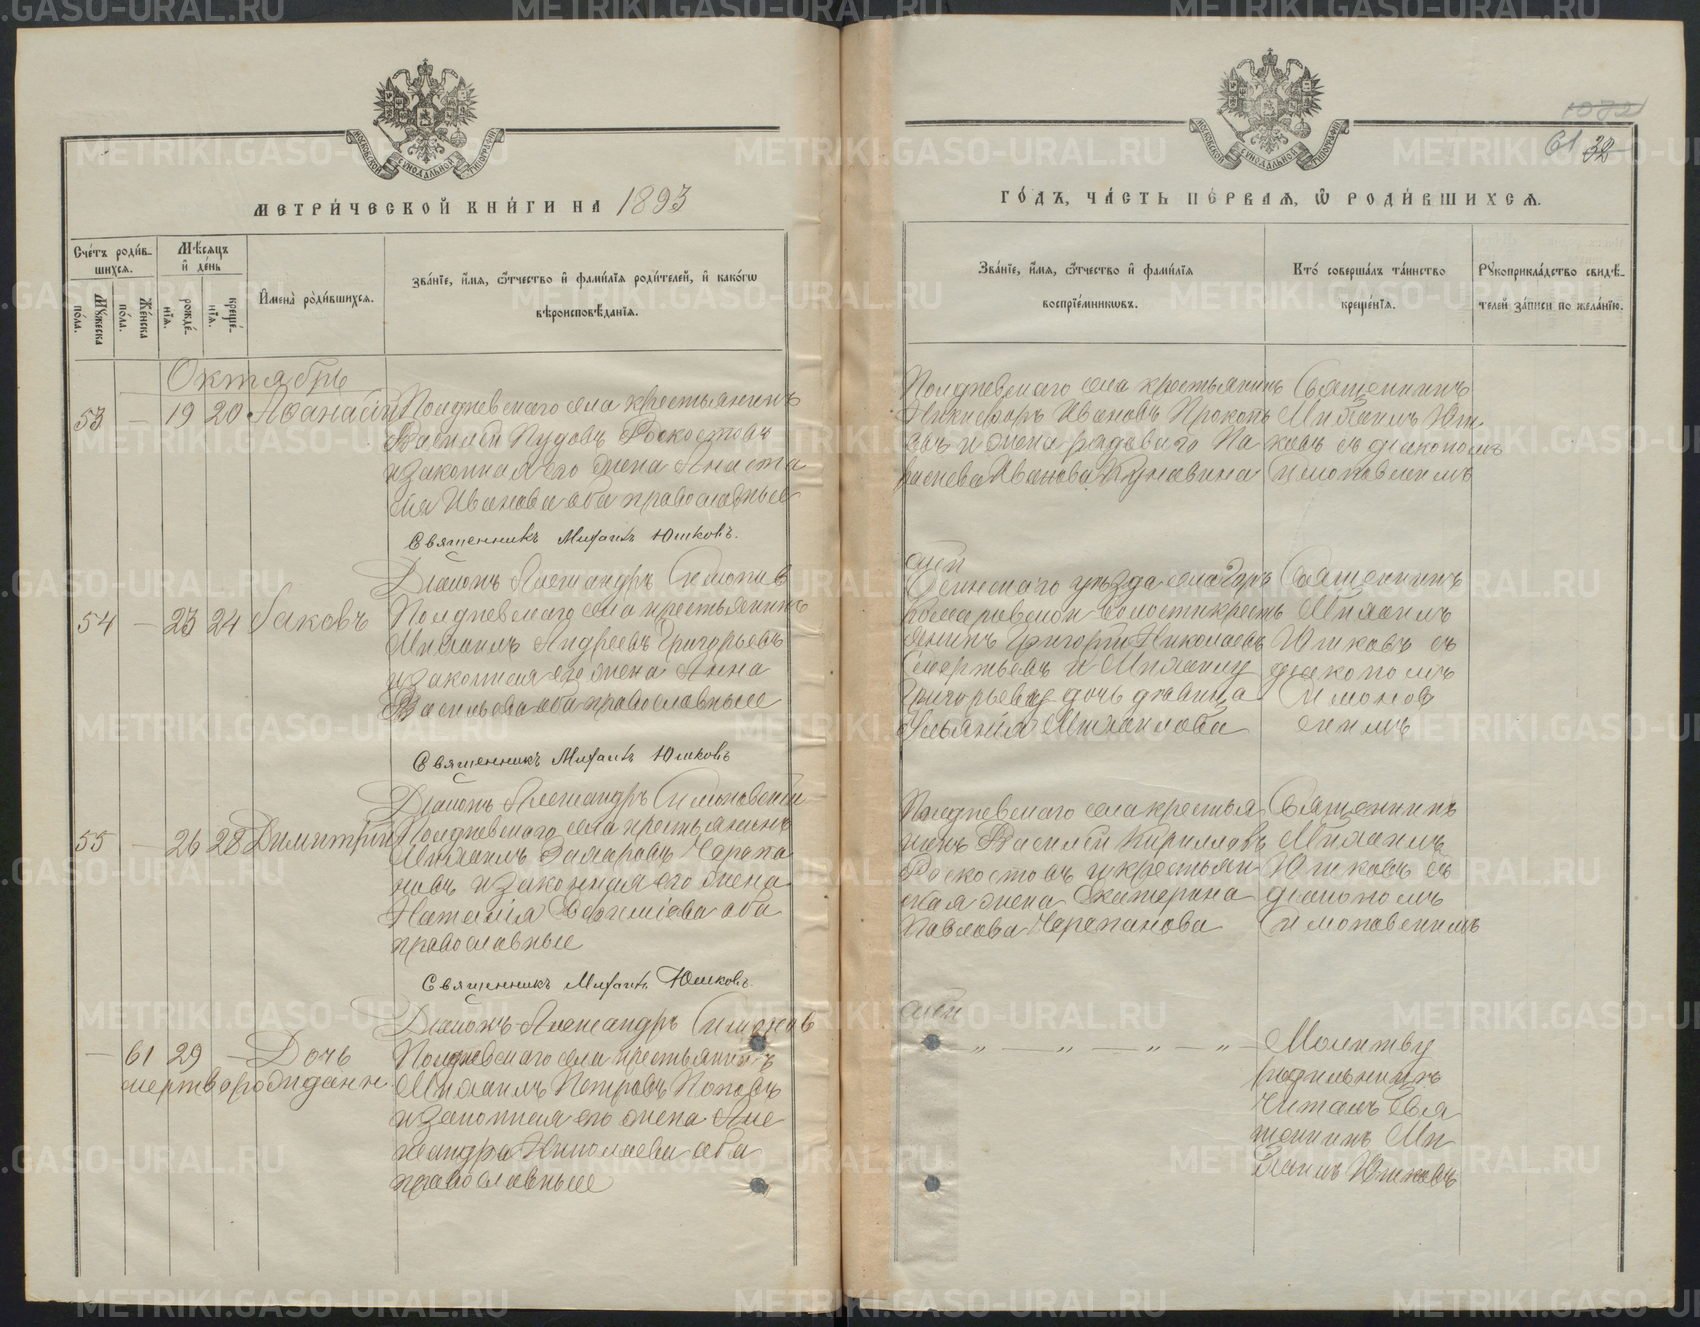 МЕТРИ́ЧЕСКОЙ КНИ́ГИ НА 1893
Счетъ роди́в-
шихся.
Мѣсяцъ
и҆ де́нь
Мужеска
по́ла.
Же́нска
по́ла.
рожде́-
нїя.
креще́-
нїя.
И҆мена̀ роди́вшихся.
Зва́нїе, и҆́мя, ѻ҆́тчество и҆ фами́лїя роди́телей, и҆ како́гѡ
вѣроисповѣ́данїя.
Октябрь
53 — 19 20 Аѳанасій
Полдневскаго села крестьянинъ
Василій Пудовъ Роскостовъ
и законная его жена Анаста
сія Иванова оба православные
Священникъ Михаилъ Юшковъ.
Діаконъ Александръ Симонов
54 — 23 24 Іаковъ
Полдневскаго села крестьянинъ
Михаилъ Андреевъ Григорьевъ
и законная его жена Анна
Васильева оба православные
Священникъ Михаилъ Юшковъ
Діаконъ Александръ Симоновскій
55 — 26 28 Димитрій
Полдневскаго села крестьянинъ
Михаилъ Захаровъ Черепа
новъ и законная его жена
Наталія Евфиміева оба
православные
Священникъ Михаилъ Юшковъ.
Діаконъ Александръ Симоновъ
— 61 29 — Дочь
мертворожденн
Полдневскаго села крестьянинъ
Михаилъ Петровъ Поповъ
и законная его жена Але
ксандра Николаева оба
православные
61 32
ГО́ДЪ, ЧА́СТЬ ПЕ́РВАЯ, Ѡ҆ РОДИ́ВШИХСЯ.
Зва́нїе, и҆́мя, ѻ҆́тчество и҆ фами́лїя
воспрїе́мниковъ.
Кто̀ соверша́лъ та́инство
креще́нїя.
Рукоприкла́дство свидѣ́-
телей за́писи по жела́нїю.
Полдневскаго села крестьянинъ
Никифоръ Ивановъ Прокопь
евъ и жена рядоваго Па
Иванова
Священникъ
Михаилъ Юш
ковъ съ діакономъ
Симоновскимъ
уѣзда села
волости кресть
янинъ Григорій Николаевъ
и Михаилу
Григорьеву дочь дѣвица
Михаилова
Священникъ
Михаилъ
Юшковъ съ
діакономъ
Симонов
скимъ
Полдневскаго села крестья
нинъ Василій Кирилловъ
Роскостовъ и крестьян
ская жена Екатерина
Павлова Черепанова
Священникъ
Михаилъ
Юшковъ съ
діакономъ
Симоновскимъ
„ — „ — „ — „ —
Молитву
родильницѣ
читалъ Свя
щенникъ Ми
хаилъ Юшковъ